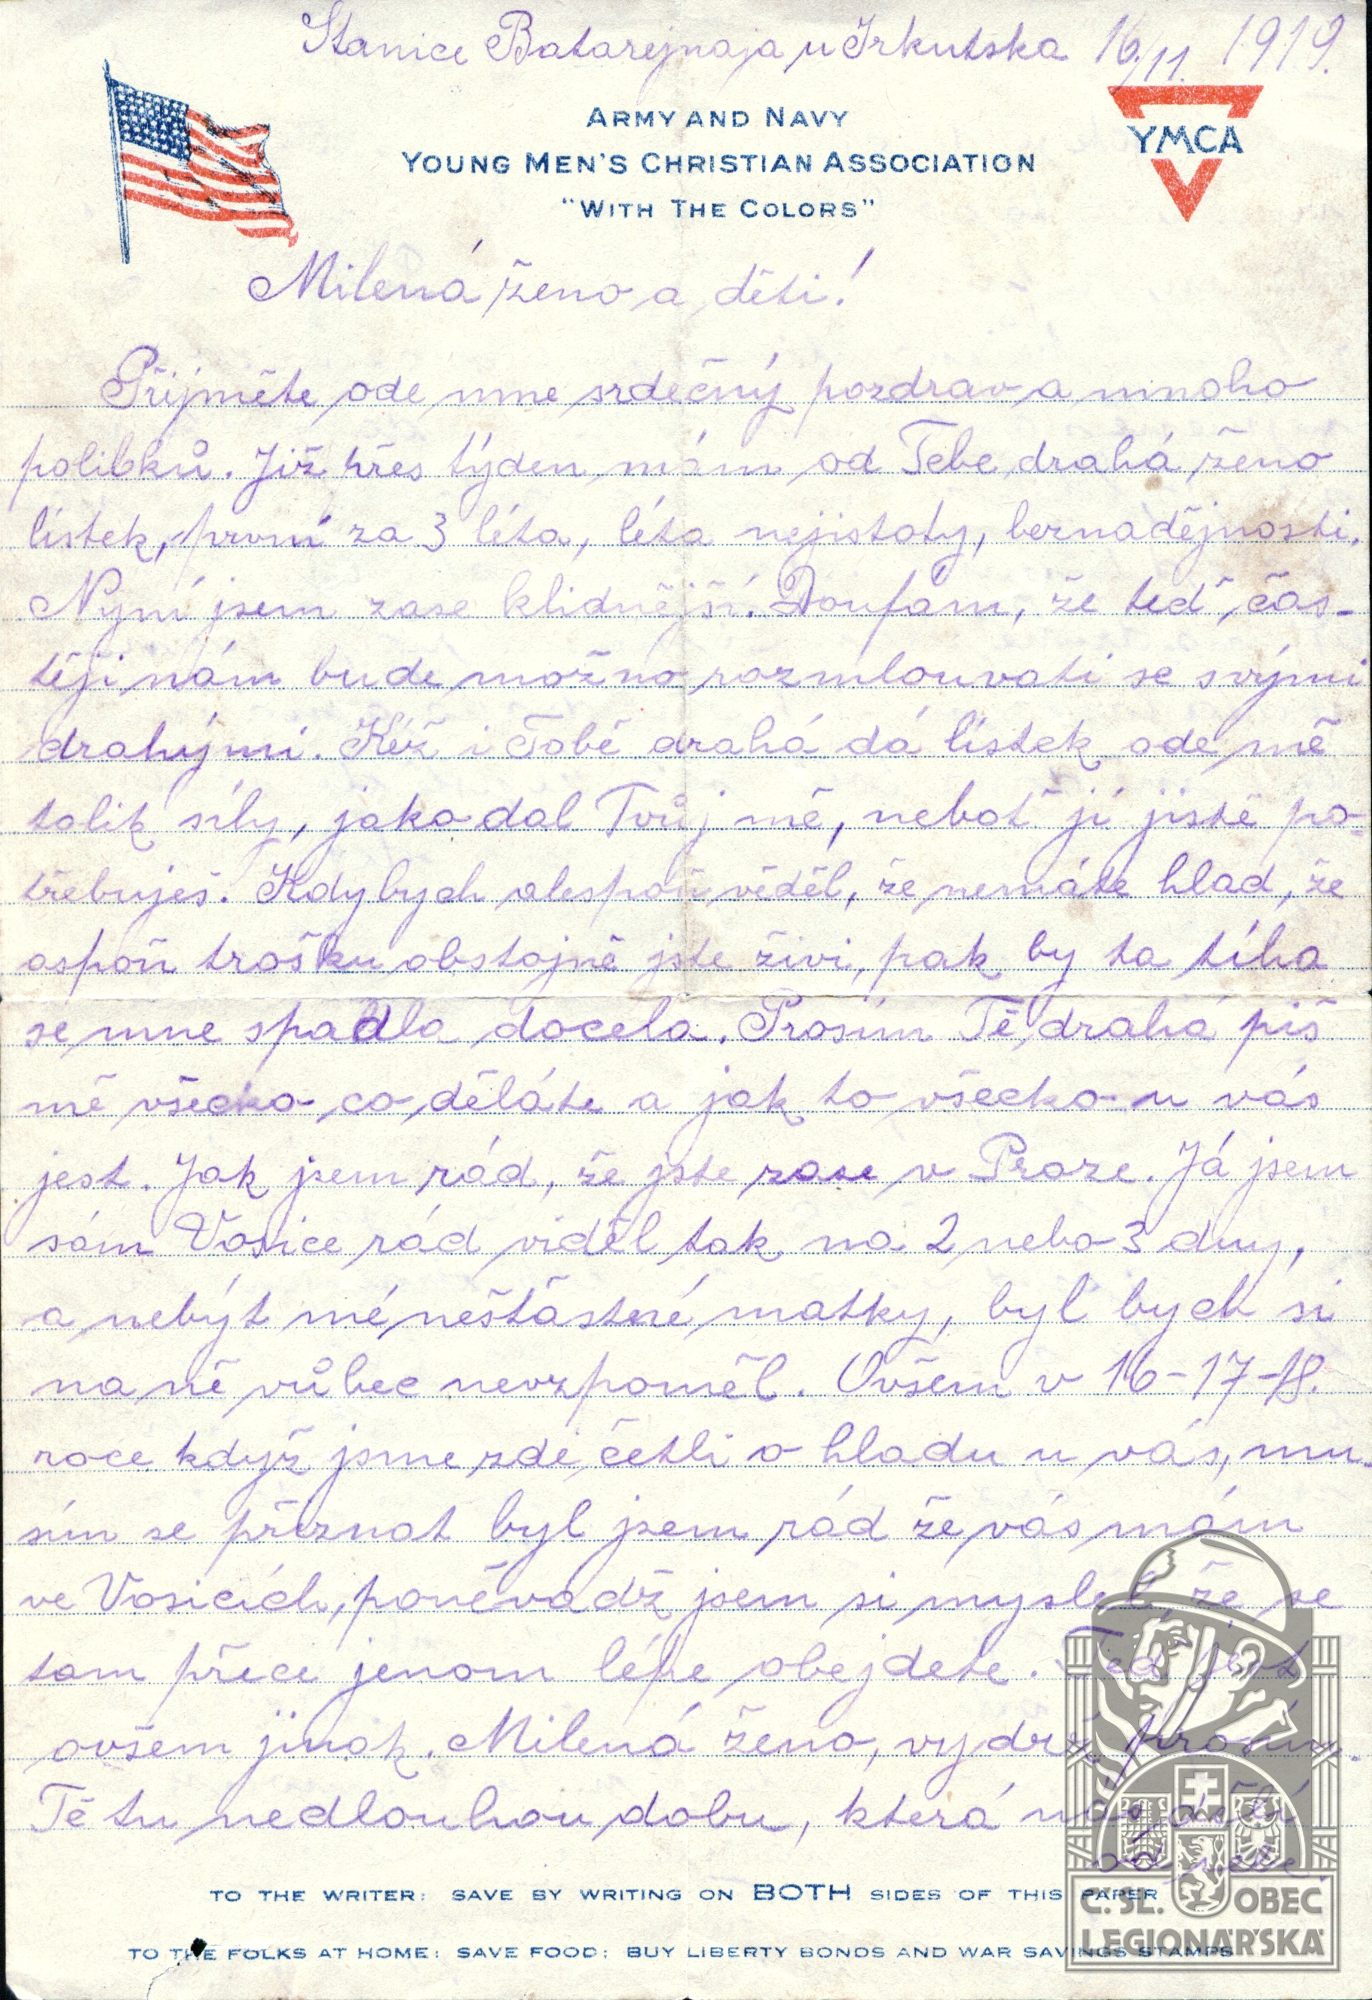 Stanice Batarejnaja u Irkutska 16/11. 1919.
ARMY AND NAVY
YOUNG MEN'S CHRISTIAN ASSOCIATION
"WITH THE COLORS"
YMCA
Milená ženo a děti!
Přijměte ode mne srdečný pozdrav a mnoho
polibků. Již přes týden mám od Tebe drahá ženo
lístek, první za 3 léta, léta nejistoty, beznadějnosti.
Nyní jsem zase klidnější. Doufám, že teď čas-
těji nám bude možno rozmlouvati se svými
drahými. Kéž i Tobě drahá dá lístek ode mě
tolik síly, jako dal Tvůj mě, neboť jí jistě po-
třebuješ. Kdybych alespoň věděl, že nemáte hlad, že
aspoň trošku obstojně jste živi, pak by ta tíha
se mne spadla docela. Prosím Tě drahá piš
mě všecko co děláte a jak to všecko u vás
jest. Jak jsem rád, že jste zase v Praze. Já jsem
sám Vosice rád viděl tak na 2 nebo 3 dny,
a nebýt mé nešťastné matky, byl bych si
na ně vůbec nevzpoměl. Ovšem v 16-17-18.
roce když jsme zde četli o hladu u vás, mu-
sím se přiznat byl jsem rád že vás mám
ve Vosicích, poněvadž jsem si myslel, že se
tam přece jenom lépe obejdete. Teď jest
ovšem jinak. Milená ženo, vydrž prosím
Tě tu nedlouhou dobu, která nás dělí
od sebe.
TO THE WRITER: SAVE BY WRITING ON BOTH SIDES OF THIS PAPER
TO THE FOLKS AT HOME: SAVE FOOD; BUY LIBERTY BONDS AND WAR SAVINGS STAMPS
Č. SL. OBEC
LEGIONÁŘSKÁ